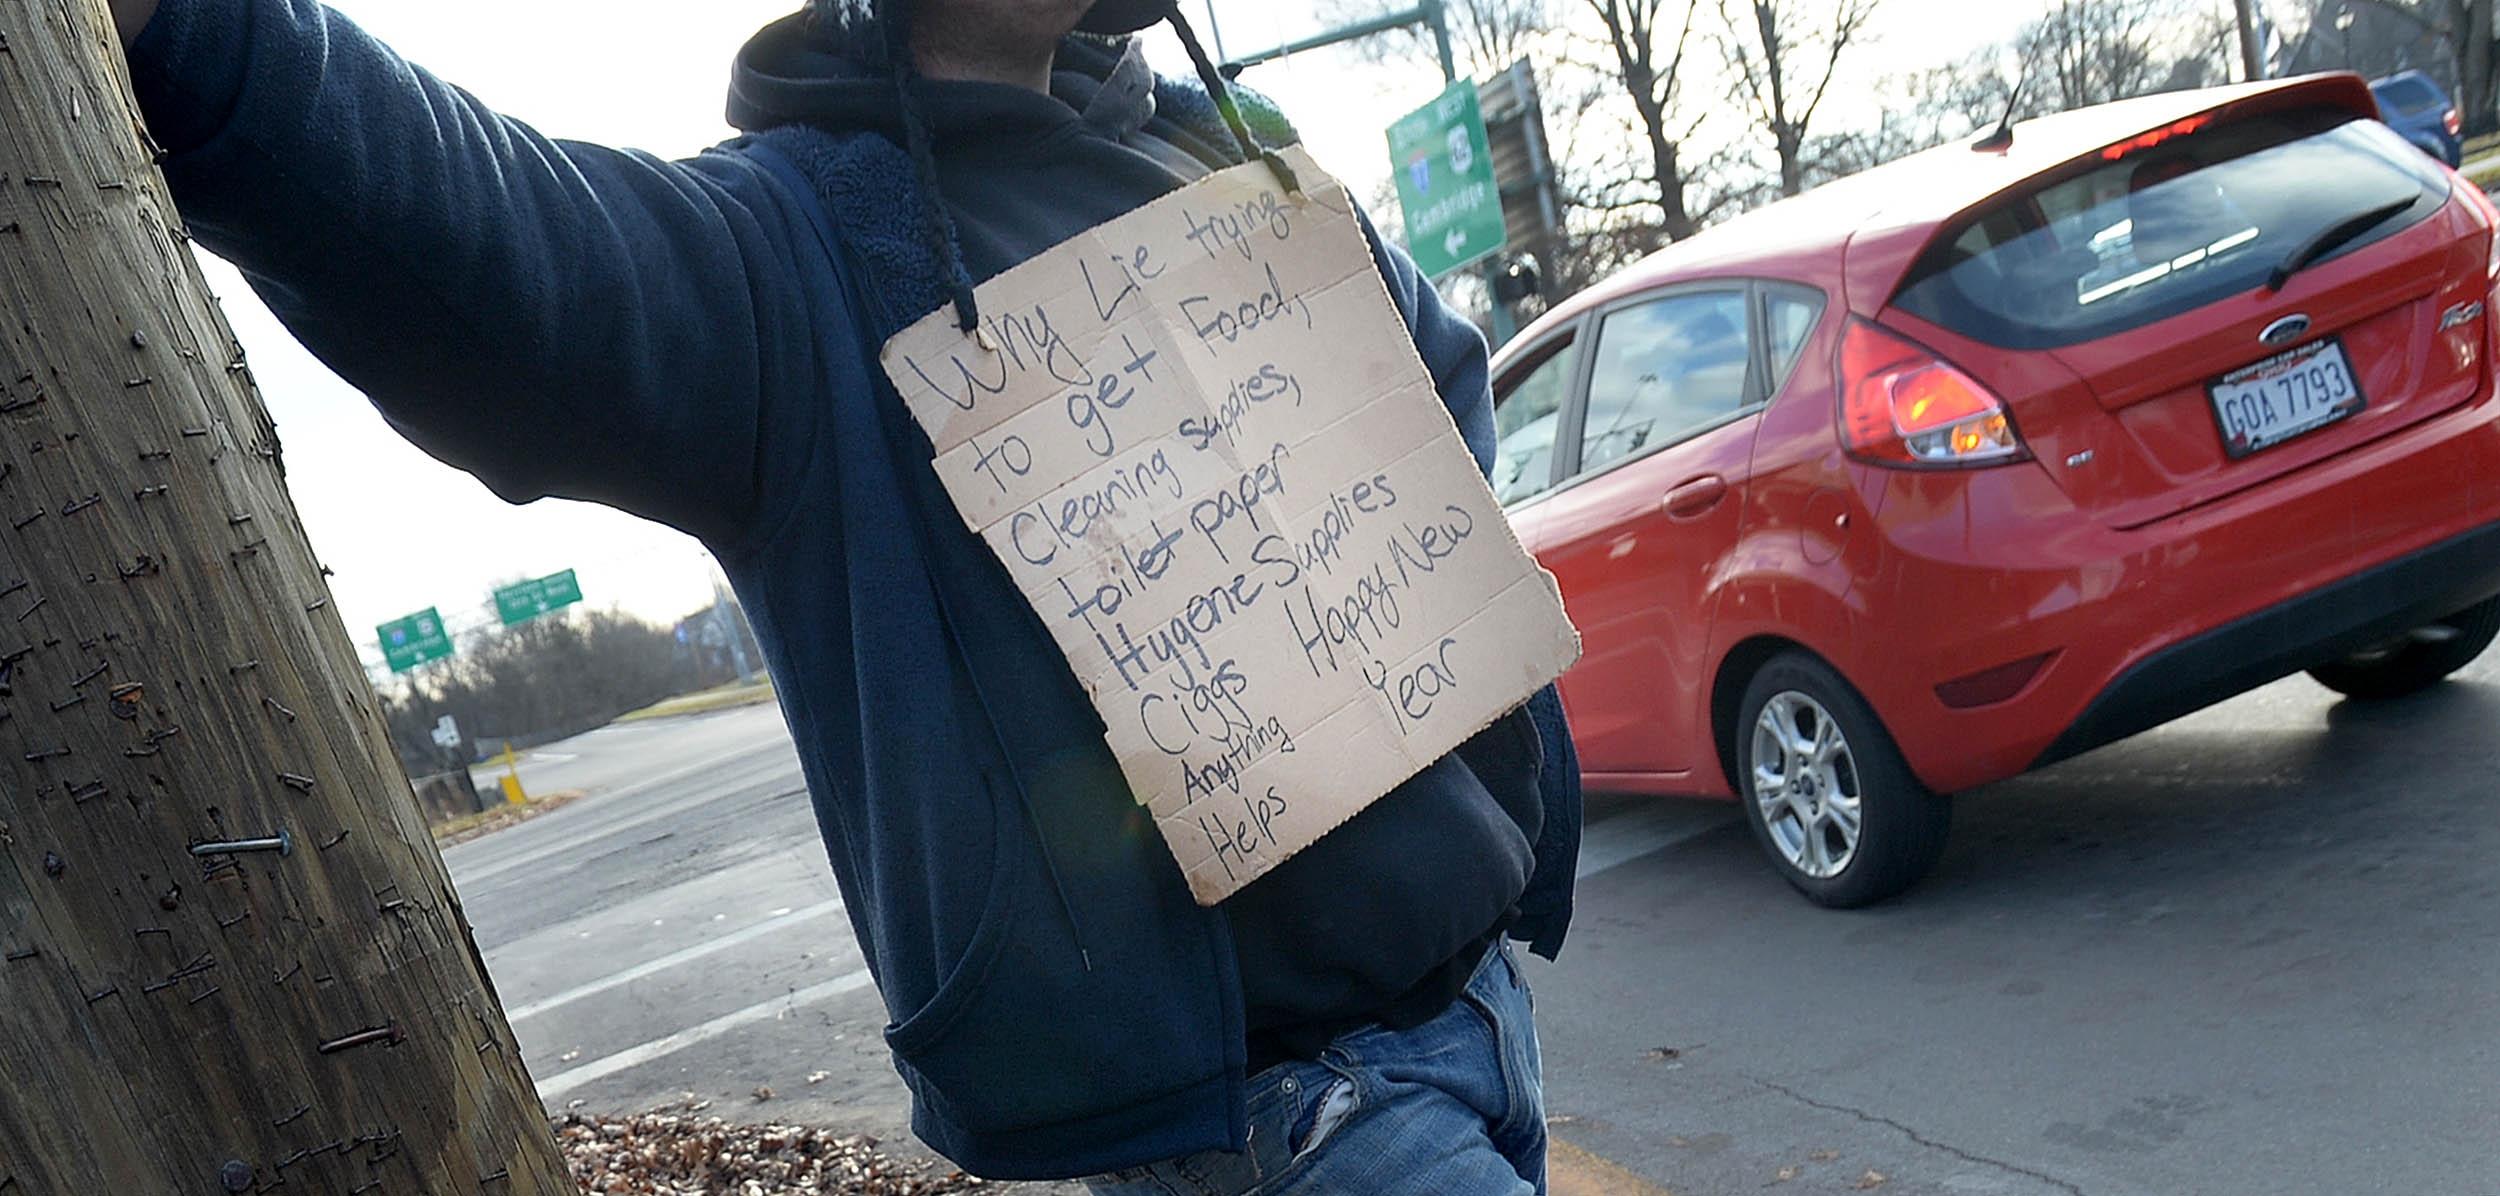 Why Lie trying
to get Food,
Cleaning supplies,
toilet paper
Hygene Supplies
Ciggs Happy New
Year
Anything
Helps
77
Cambridge
GOA 7793
Ford
SE